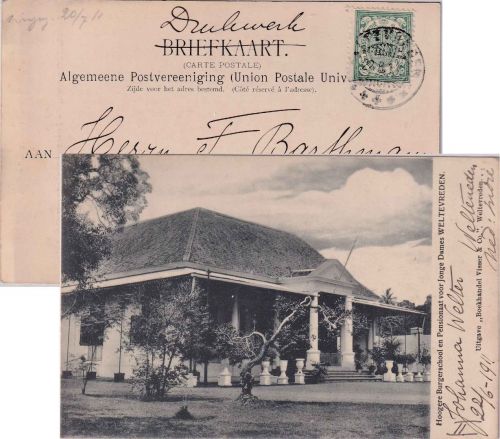 20/7 11
Drukwerk
BRIEFKAART.
(CARTE POSTALE)
Algemeene Postvereeniging (Union Postale Univ
Zijde voor het adres bestemd. (Côté réservé à l'adresse).
AAN Herrn F Barthmann
Hoogere Burgerschool en Pensionaat voor Jonge Dames WELTEVREDEN.
Uitgave „Boekhandel Visser & Co.," Weltevreden.
Johanna Welter Weltevreden
22/6-1911 Ned Indië